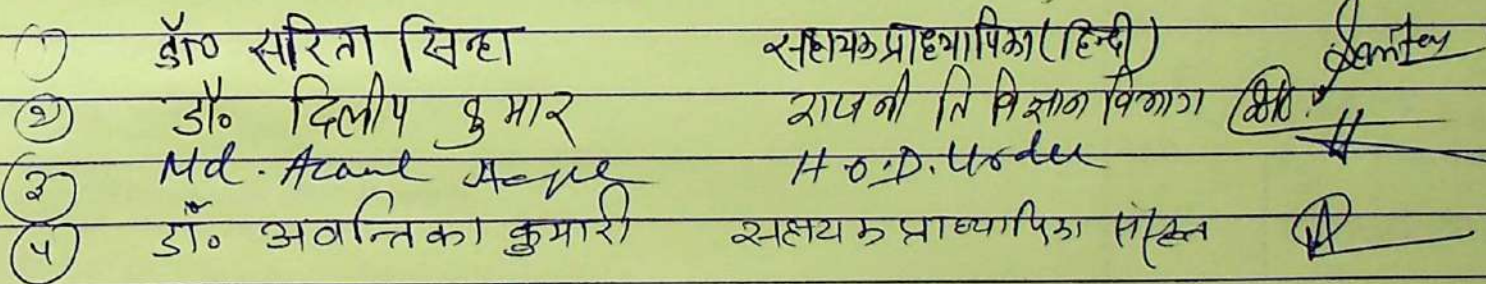 १ डॉ० सरिता सिन्हा सहायक प्राध्यापिका (हिन्दी)
२ डॉ० दिलीप कुमार राजनीति विज्ञान विभाग
३ Md. H.O.D. Urdu
४ डॉ० अवन्तिका कुमारी सहायक प्राध्यापिका संस्कृत